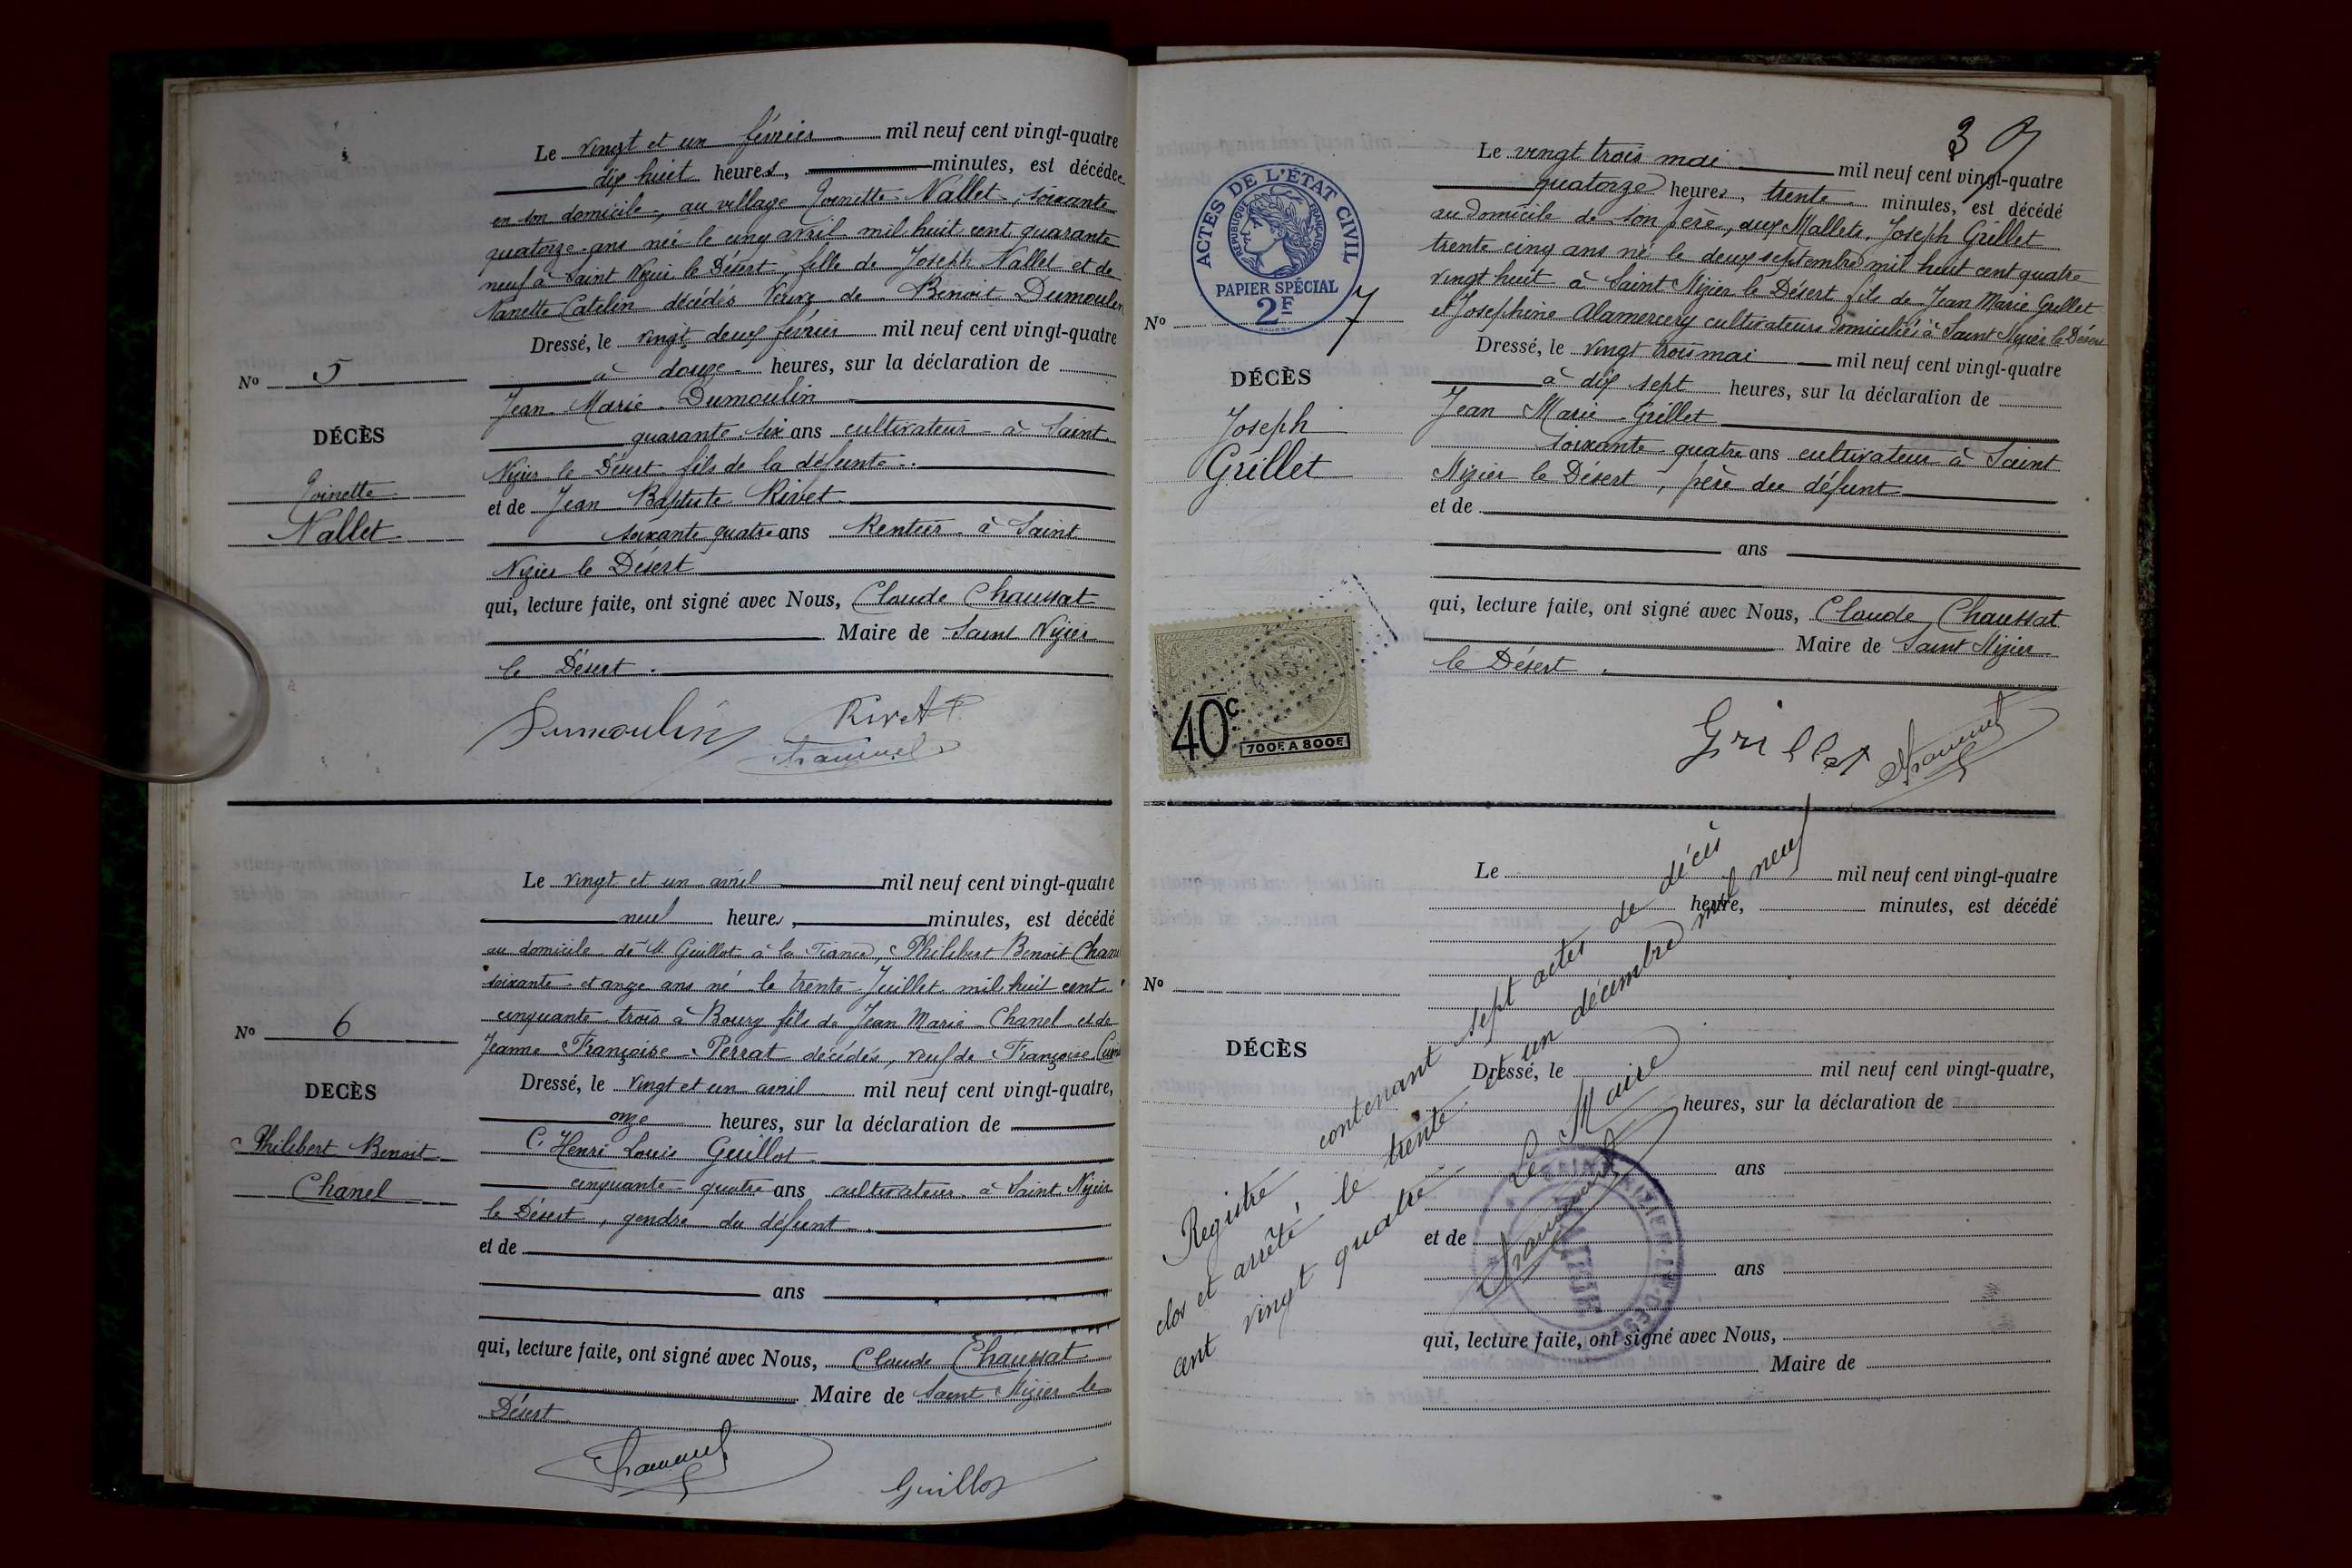 Le vingt et un février mil neuf cent vingt-quatre
dix huit heures, minutes, est décédée
en son domicile, au village Toinette Nallet, soixante
quatorze ans née le cinq avril mil huit cent quarante
neuf à Saint Nizier le Désert, fille de Joseph Nallet et de
Nanette Catelin décédés Veuve de Benoit Dumoulin
Dressé, le vingt deux février mil neuf cent vingt-quatre
à douze heures, sur la déclaration de
Jean Marie Dumoulin
quarante six ans cultivateur à Saint
Nizier le Désert fils de la défunte
et de Jean Baptiste Rivet
soixante quatre ans Rentier à Saint
Nizier le Désert
qui, lecture faite, ont signé avec Nous, Claude Chaussat
Maire de Saint Nizier
le Désert.
Nº 5
DÉCÈS
Toinette
Nallet
Dumoulin Rivet
Le vingt et un avril mil neuf cent vingt-quatre
neuf heures, minutes, est décédé
au domicile de M Guillot à la Fiance, Philibert Benoit Chan
soixante et onze ans né le trente Juillet mil huit cent
cinquante trois à Bourg fils de Jean Marie Chanel et de
Jeanne Françoise Perrat décédés, veuf de Françoise
Dressé, le vingt et un avril mil neuf cent vingt-quatre,
onze heures, sur la déclaration de
C. Henri Louis Guillot
cinquante quatre ans cultivateur à Saint Nizier
le Désert, gendre du défunt.
et de
ans
qui, lecture faite, ont signé avec Nous, Claude Chaussat
Maire de Saint Nizier le
Désert
Nº 6
DECÈS
Philibert Benoit
Chanel
Guillot
3
Le vingt trois mai mil neuf cent vingt-quatre
quatorze heures, trente minutes, est décédé
au domicile de son père, aux Mallets, Joseph Grillet
trente cinq ans né le deux septembre mil huit cent quatre
vingt huit à Saint Nizier le Désert fils de Jean Marie Grillet
et Josephine Alamercery cultivateurs domiciliés à Saint Nizier le Désert
Dressé, le vingt trois mai mil neuf cent vingt-quatre
à dix sept heures, sur la déclaration de
Jean Marie Grillet
soixante quatre ans cultivateur à Saint
Nizier le Désert, père du défunt
et de
ans
qui, lecture faite, ont signé avec Nous, Claude Chaussat
Maire de Saint Nizier
le Désert.
ACTES DE L'ÉTAT CIVIL
RÉPUBLIQUE FRANÇAISE
PAPIER SPÉCIAL
2F
Nº 7
DÉCÈS
Joseph
Grillet
40c.
700F. A 800F.
Grillet
Le mil neuf cent vingt-quatre
heure, minutes, est décédé
Nº
DÉCÈS
Dressé, le mil neuf cent vingt-quatre,
heures, sur la déclaration de
ans
et de
ans
qui, lecture faite, ont signé avec Nous,
Maire de
Registre contenant sept actes de décès
clos et arrêté le trente et un décembre mil neuf
cent vingt quatre
Le Maire
MAIRIE